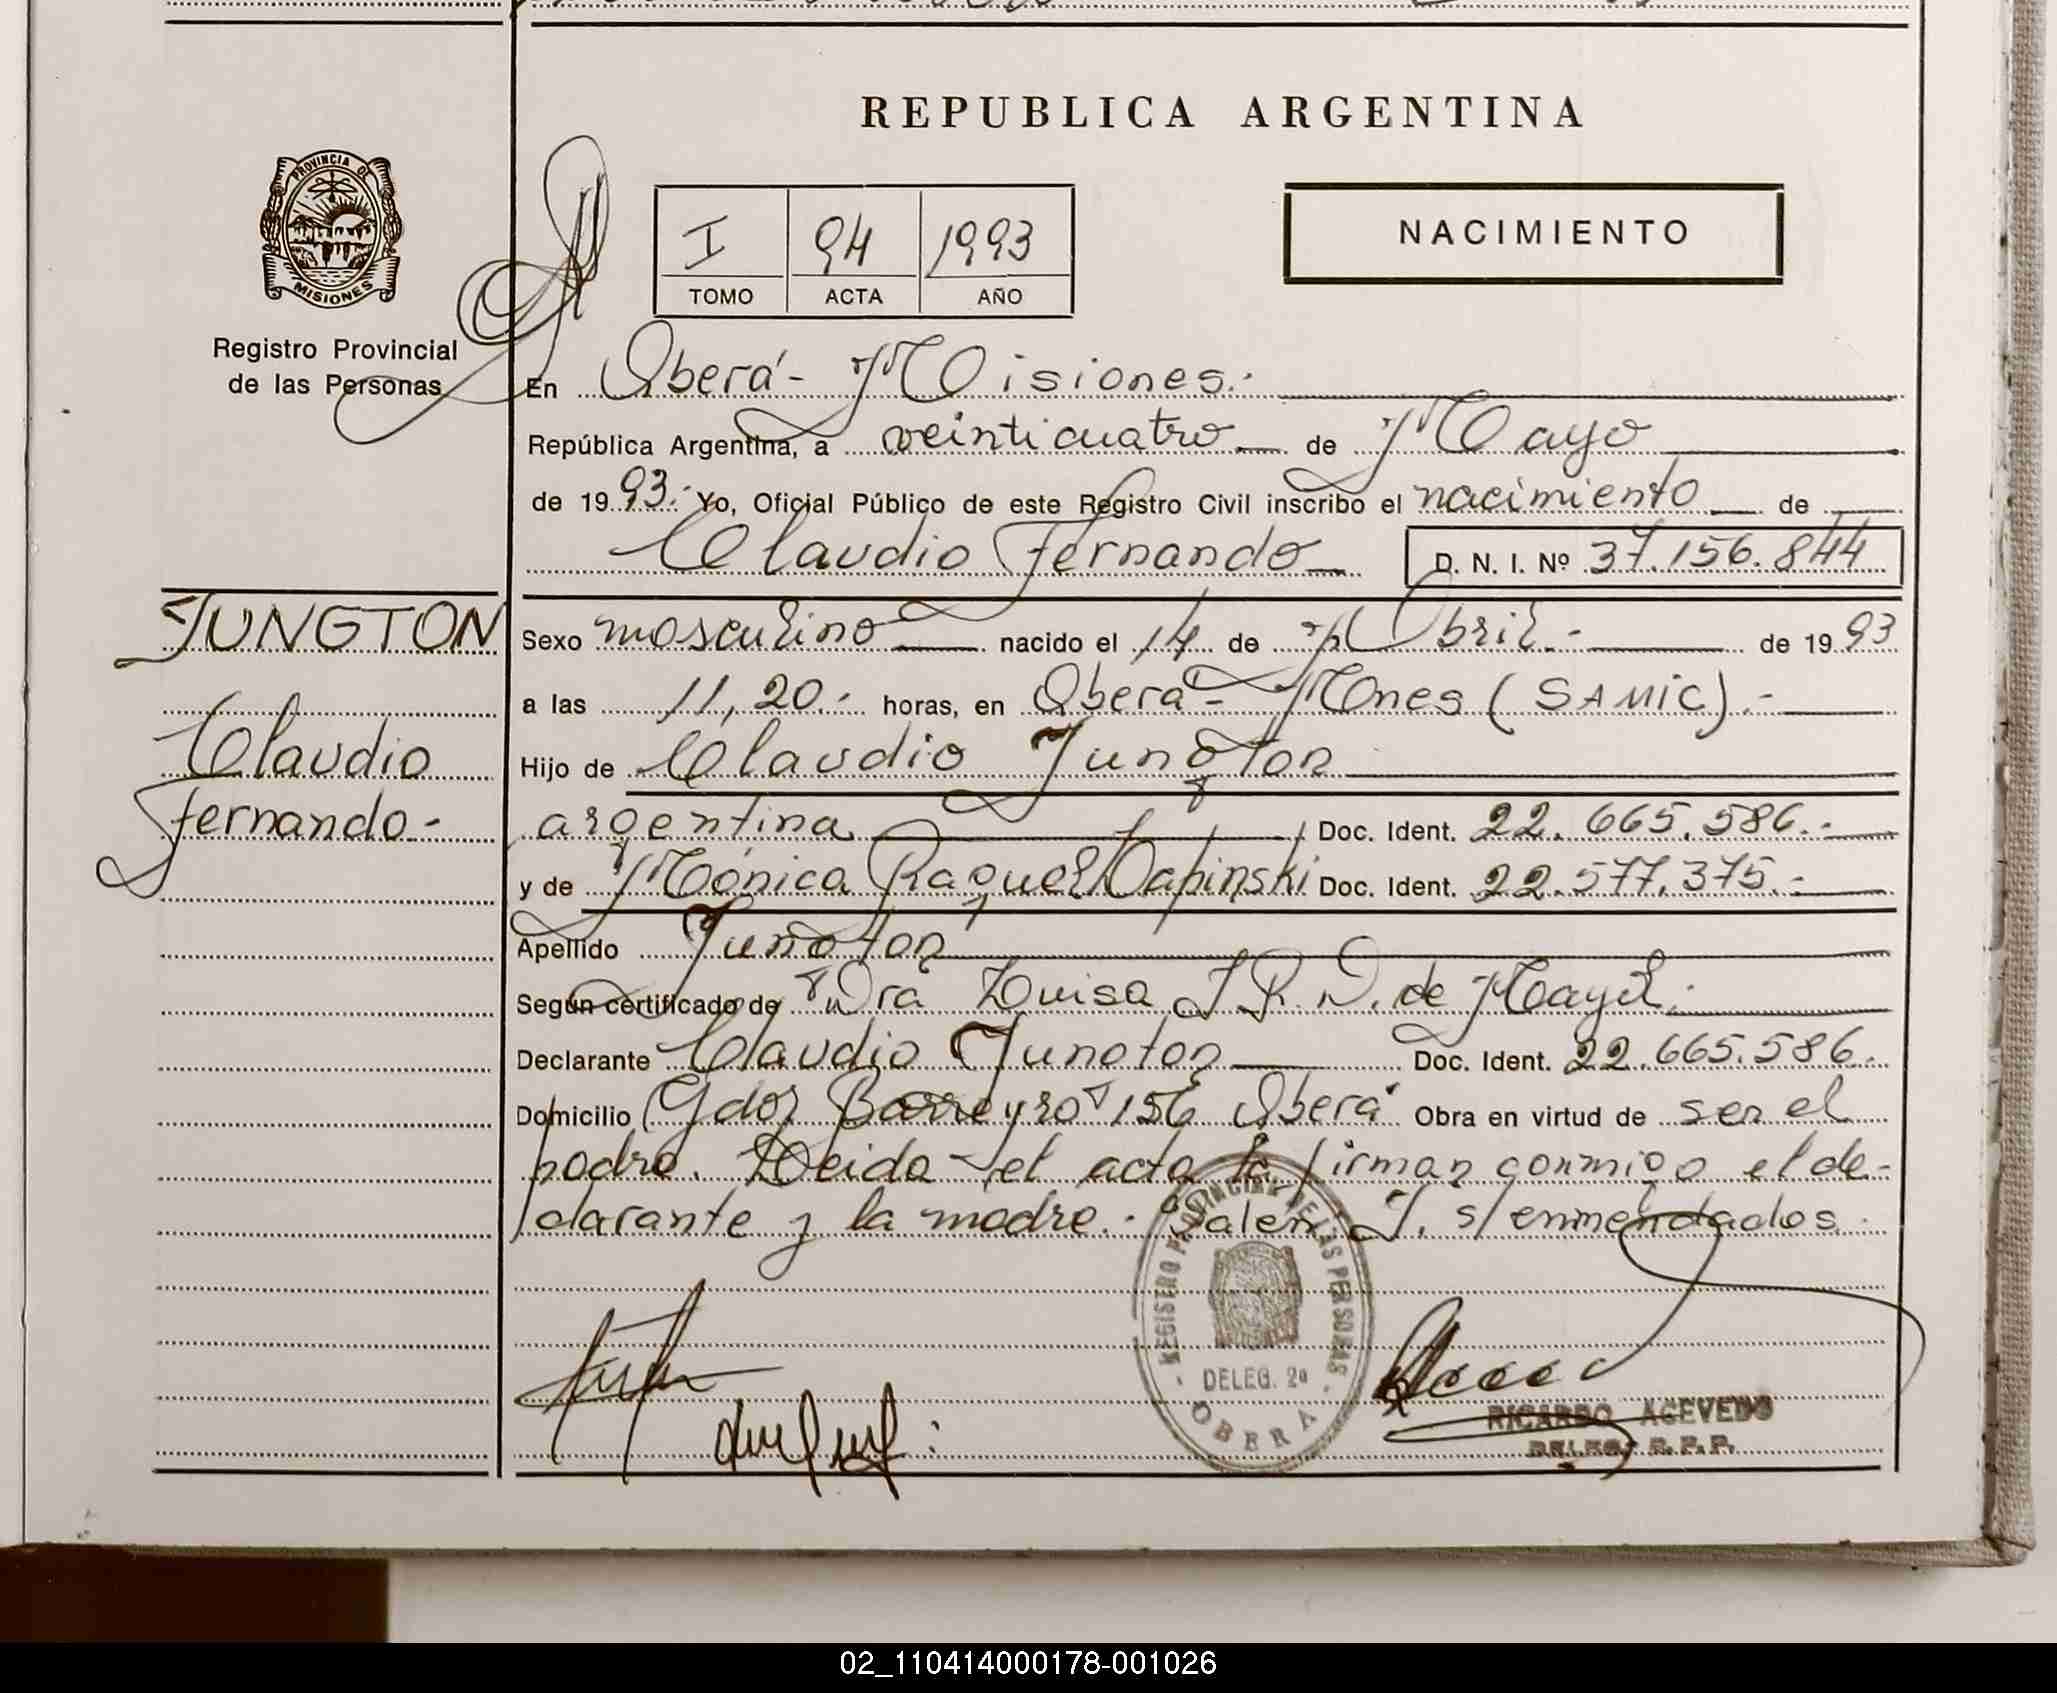 REPUBLICA ARGENTINA
PROVINCIA DE
MISIONES
Registro Provincial
de las Personas
I 94 1993
TOMO ACTA AÑO
NACIMIENTO
En Oberá - Misiones.-
República Argentina, a veinticuatro de Mayo
de 1993.- Yo, Oficial Público de este Registro Civil inscribo el nacimiento de
Claudio Fernando D. N. I. Nº 37.156.844
JUNGTON
Claudio
Fernando.-
Sexo masculino nacido el 14 de Abril.- de 1993
a las 11,20.- horas, en Oberá - Mnes (SAMIC).-
Hijo de Claudio Jungton
argentina Doc. Ident. 22.665.586.-
y de Mónica Raquel Doc. Ident. 22.577.375.-
Apellido Jungton
Según certificado de Dra Luisa de
Declarante Claudio Jungton Doc. Ident. 22.665.586.-
Domicilio Gdor Barreyro 156 Oberá Obra en virtud de ser el
padre. Leida el acta la firman conmigo el de-
clarante y la madre.- Valen s/enmendados.-
REGISTRO PROVINCIAL DE LAS PERSONAS
DELEG. 2ª
OBERA
RICARDO ACEVEDO
DELEG. R. P. P.
02_110414000178-001026